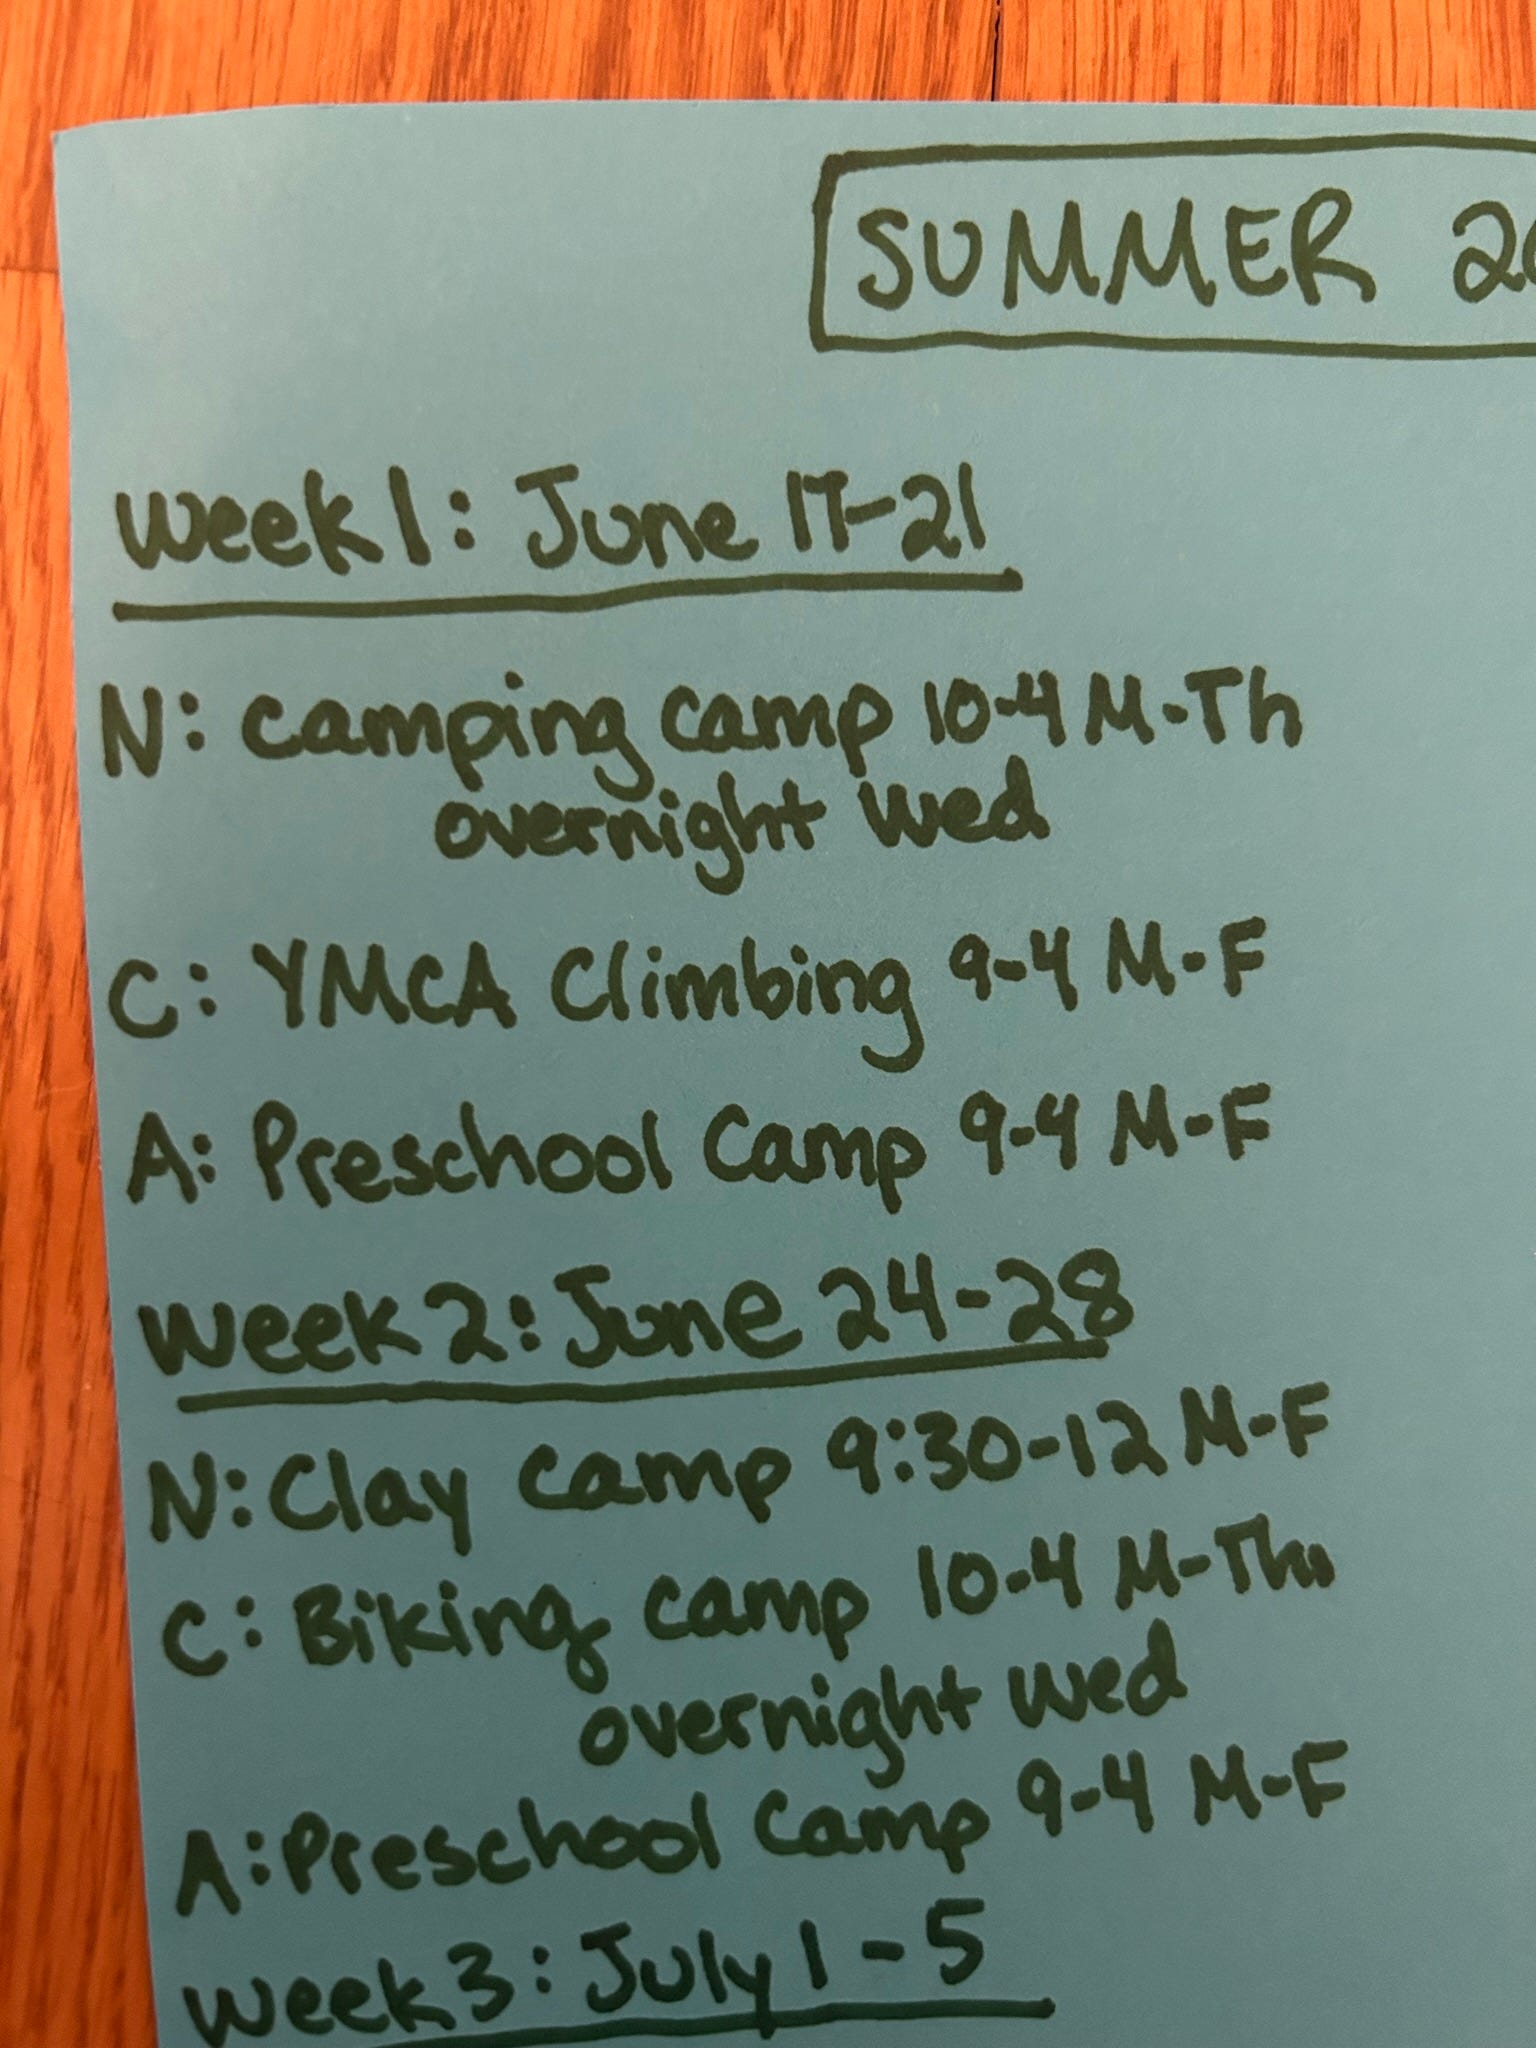 SUMMER 20
Week 1: June 17-21
N: Camping Camp 10-4 M-Th
overnight Wed
C: YMCA Climbing 9-4 M-F
A: Preschool Camp 9-4 M-F
Week 2: June 24-28
N: Clay Camp 9:30-12 M-F
C: Biking Camp 10-4 M-Th
overnight Wed
A: Preschool Camp 9-4 M-F
Week 3: July 1-5